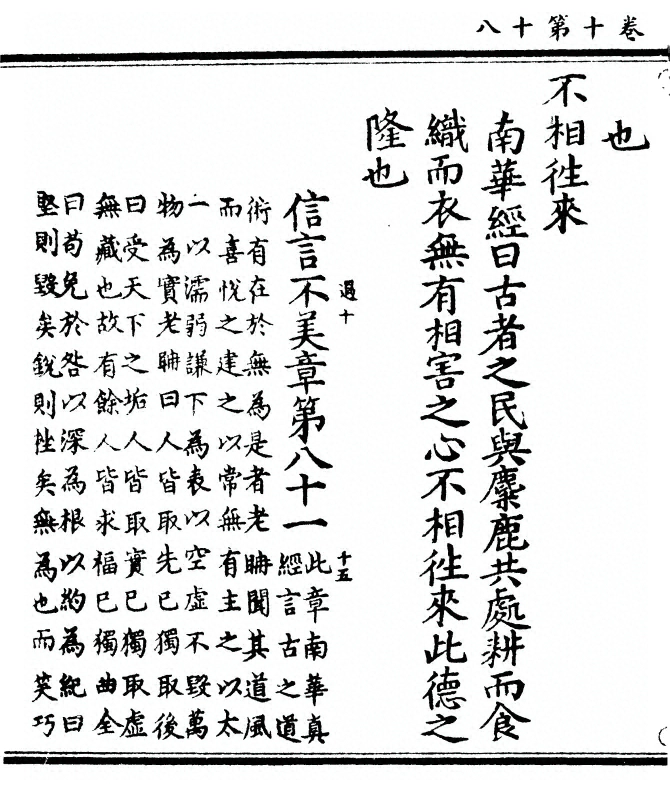 卷十第十八
也
不相徃來
南華經曰古者之民與麋鹿共處耕而食
織而衣無有相害之心不相徃來此德之
隆也
過十
十五
信言不美章第八十一
此章南華真
經言古之道
術有在於無為是者老聃聞其道風
而喜悅之建之以常無有主之以太
一以濡弱謙下為表以空虛不毀萬
物為實老聃曰人皆取先已獨取後
曰受天下之垢人皆取實已獨取虛
無藏也故有餘人皆求福已獨曲全
曰苟免於咎以深為根以約為紀曰
堅則毀矣銳則挫矣無為也而笑巧